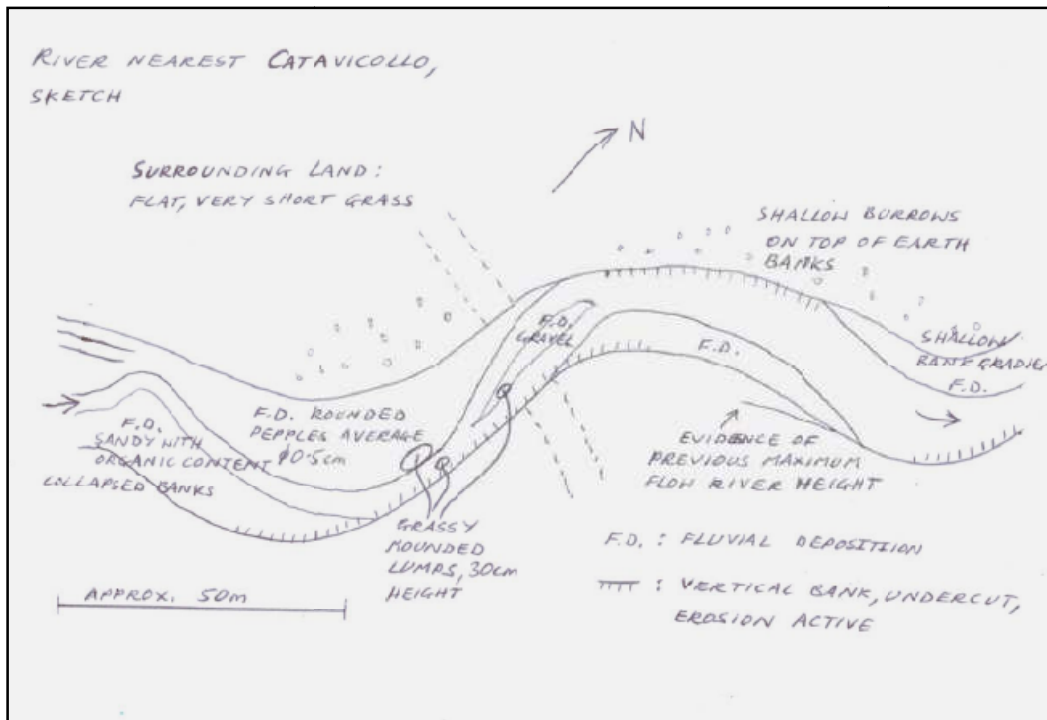 RIVER NEAREST CATAVICOLLO,
SKETCH
N
SURROUNDING LAND:
FLAT, VERY SHORT GRASS
SHALLOW BURROWS
ON TOP OF EARTH
BANKS
F.D.
GRAVEL
F.D.
SHALLOW
BANK GRADIE
F.D.
F.D. ROUNDED
PEPPLES AVERAGE
φ0.5cm
F.D.
SANDY WITH
ORGANIC CONTENT
COLLAPSED BANKS
EVIDENCE OF
PREVIOUS MAXIMUM
FLOW RIVER HEIGHT
GRASSY
ROUNDED
LUMPS, 30cm
HEIGHT
F.D. : FLUVIAL DEPOSITION
: VERTICAL BANK, UNDERCUT,
EROSION ACTIVE
APPROX. 50m